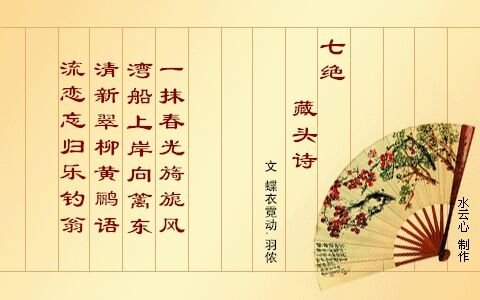 七绝
藏头诗
文 蝶衣霓动.羽侬
一抹春光旖旎风
湾船上岸向篱东
清新翠柳黄鹂语
流恋忘归乐钓翁
水云心 制作